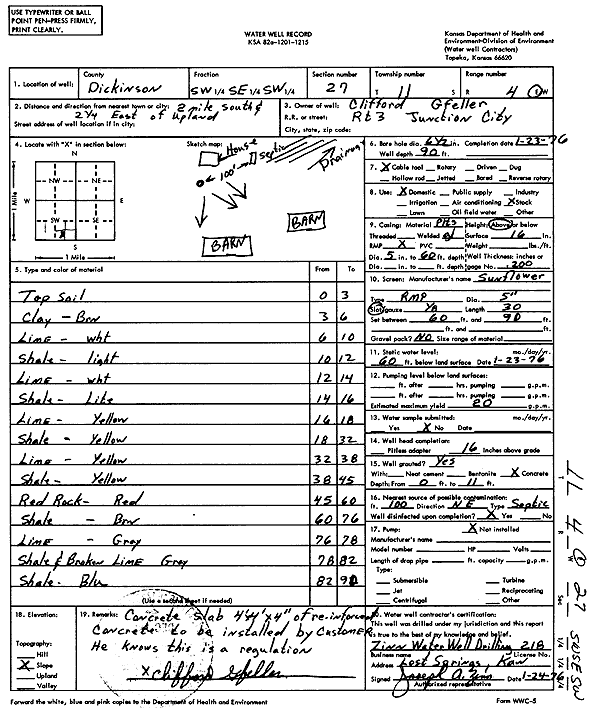 USE TYPEWRITER OR BALL
POINT PEN-PRESS FIRMLY,
PRINT CLEARLY.
WATER WELL RECORD
KSA 82a-1201-1215
Kansas Department of Health and
Environment-Division of Environment
(Water well Contractors)
Topeka, Kansas 66620
1. Location of well: County Dickinson Fraction SW 1/4 SE 1/4 SW 1/4 Section number 27 Township number T 11 S Range number R 4 E W
2. Distance and direction from nearest town or city: 2 mile south &
2 1/4 East of Upland
Street address of well location if in city:
3. Owner of well: Clifford Gfeller
R.R. or street: Rt 3 Junction City
City, state, zip code:
4. Locate with "X" in section below: N
NW NE
W E
SW SE
S
1 Mile
1 Mile
Sketch map:
House
100' Septic
BARN
BARN
6. Bore hole dia. 6 1/2 in. Completion date 1-23-76
Well depth 90 ft.
7. X Cable tool Rotary Driven Dug
Hollow rod Jetted Bored Reverse rotary
8. Use: X Domestic Public supply Industry
Irrigation Air conditioning X Stock
Lawn Oil field water Other
9. Casing: Material Height: Above or below
Threaded Welded Surface 16 in.
RMP X PVC Weight lbs./ft.
Dia. 5 in. to 60 ft. depth Wall Thickness: inches or
Dia. in. to ft. depth gage No. .200
10. Screen: Manufacturer's name Sunflower
Type RMP Dia. 5"
Slot/gauze Length 30
Set between 60 ft. and 90 ft.
ft. and ft.
Gravel pack? NO Size range of material
11. Static water level: mo./day/yr.
60 ft. below land surface Date 1-23-76
12. Pumping level below land surfaces:
ft. after hrs. pumping g.p.m.
ft. after hrs. pumping g.p.m.
Estimated maximum yield 20 g.p.m.
13. Water sample submitted: mo./day/yr.
Yes X No Date
14. Well head completion:
Pitless adapter 16 Inches above grade
15. Well grouted? Yes
With: Neat cement Bentonite X Concrete
Depth: From 0 ft. to 11 ft.
16. Nearest source of possible contamination:
ft. 100 Direction NE Type Septic
Well disinfected upon completion? X Yes No
17. Pump: X Not installed
Manufacturer's name
Model number HP Volts
Length of drop pipe ft. capacity g.p.m.
Type:
Submersible Turbine
Jet Reciprocating
Centrifugal Other
5. Type and color of material From To
Top Soil 0 3
Clay - Brn 3 6
Lime - wht 6 10
Shale - light 10 12
Lime - wht 12 14
Shale - Lite 14 16
Lime - Yellow 16 18
Shale - Yellow 18 32
Lime - Yellow 32 38
Shale - Yellow 38 45
Red Rock - Red 45 60
Shale - Brn 60 76
Lime - Gray 76 78
Shale & Broken Lime Gray 78 82
Shale - Blu 82 90
(Use a second sheet if needed)
18. Elevation:
Topography:
Hill
X Slope
Upland
Valley
19. Remarks: Concrete Slab 4'x4'x4" of re-inforced
Concrete to be installed by Customer
He knows this is a regulation
X Clifford Gfeller
20. Water well contractor's certification:
This well was drilled under my jurisdiction and this report
is true to the best of my knowledge and belief.
Zinn Water Well Drilling 218
Business name License No.
Address Lost Springs, Kan
Signed Joseph A. Zinn Date 1-24-76
Authorized representative
Forward the white, blue and pink copies to the Department of Health and Environment
Form WWC-5
T 11 R 4 E W Sec 27 SW SE SW 1/4 1/4 1/4